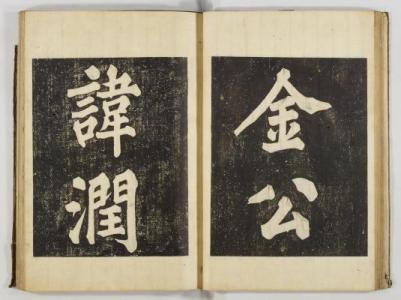 金公
諱潤